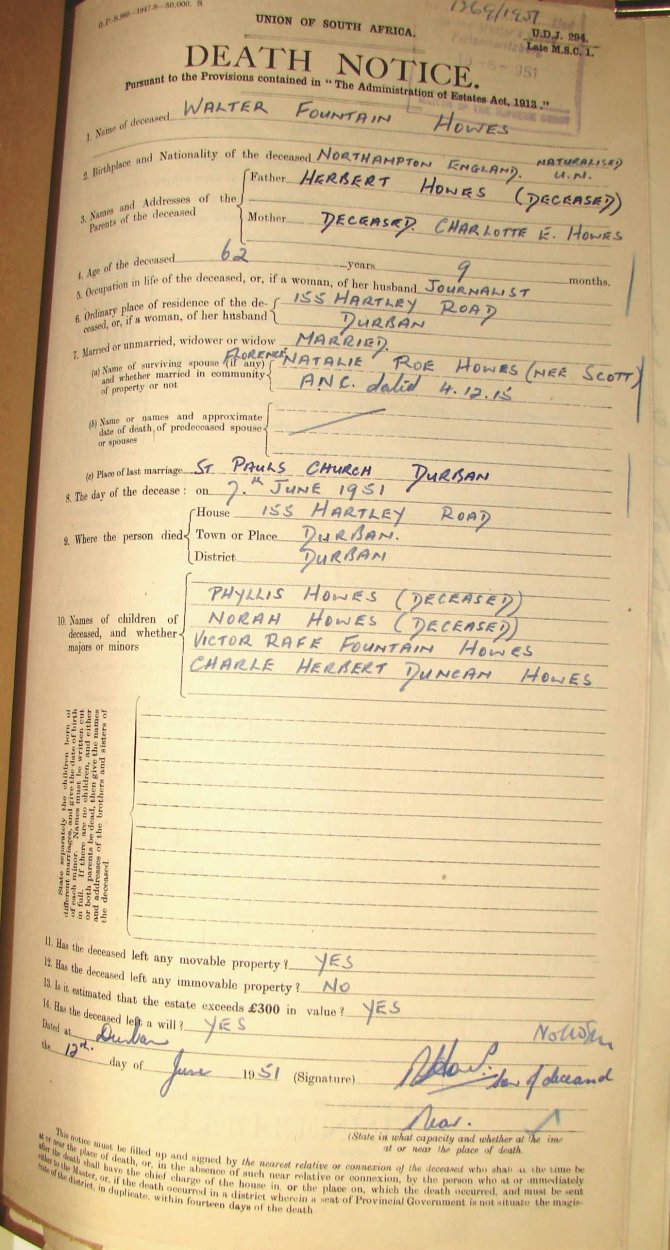 G.P. S. 1947-8—50,000. S.
1369/1951
UNION OF SOUTH AFRICA.
U.D.J. 294.
Late M.S.C. 1.
DEATH NOTICE.
Pursuant to the Provisions contained in "The Administration of Estates Act, 1913."
1. Name of deceased WALTER FOUNTAIN HOWES
2. Birthplace and Nationality of the deceased NORTHAMPTON ENGLAND. NATURALISED U.N.
3. Names and Addresses of the Parents of the deceased
Father HERBERT HOWES (DECEASED)
Mother DECEASED. CHARLOTTE E. HOWES
4. Age of the deceased 62 years 9 months.
5. Occupation in life of the deceased, or, if a woman, of her husband JOURNALIST
6. Ordinary place of residence of the de- 155 HARTLEY ROAD
ceased, or, if a woman, of her husband DURBAN
7. Married or unmarried, widower or widow MARRIED.
(a) Name of surviving spouse (if any) FLORENCE NATALIE ROE HOWES (NEE SCOTT)
and whether married in community of property or not A.N.C. dated 4.12.15
(b) Name or names and approximate
date of death of predeceased spouse
or spouses
(c) Place of last marriage ST PAULS CHURCH DURBAN
8. The day of the decease: on 7.th JUNE 1951
9. Where the person died
House 155 HARTLEY ROAD
Town or Place DURBAN.
District DURBAN
10. Names of children of
deceased, and whether
majors or minors
PHYLLIS HOWES (DECEASED)
NORAH HOWES (DECEASED)
VICTOR RAFE FOUNTAIN HOWES
CHARLE HERBERT DUNCAN HOWES
State separately the children born of
different marriages, and give the date of birth
of each minor. Names must be written out
in full. If there are no children, and either
or both parents be dead, then give the names
and addresses of the brothers and sisters of
the deceased.
11. Has the deceased left any movable property? YES
12. Has the deceased left any immovable property? NO
13. Is it estimated that the estate exceeds £300 in value? YES
14. Has the deceased left a will? YES
Dated at Durban
the 12th. day of June 1951 (Signature) son of deceased
Near.
(State in what capacity and whether at the time
at or near the place of death.
This notice must be filled up and signed by the nearest relative or connexion of the deceased who shall at the time be
at or near the place of death, or, in the absence of such near relative or connexion, by the person who at or immediately
after the death shall have the chief charge of the house in, or the place on, which the death occurred, and must be sent
either to the Master, or, if the death occurred in a district wherein a seat of Provincial Government is not situate the magis-
trate of the district, in duplicate, within fourteen days of the death